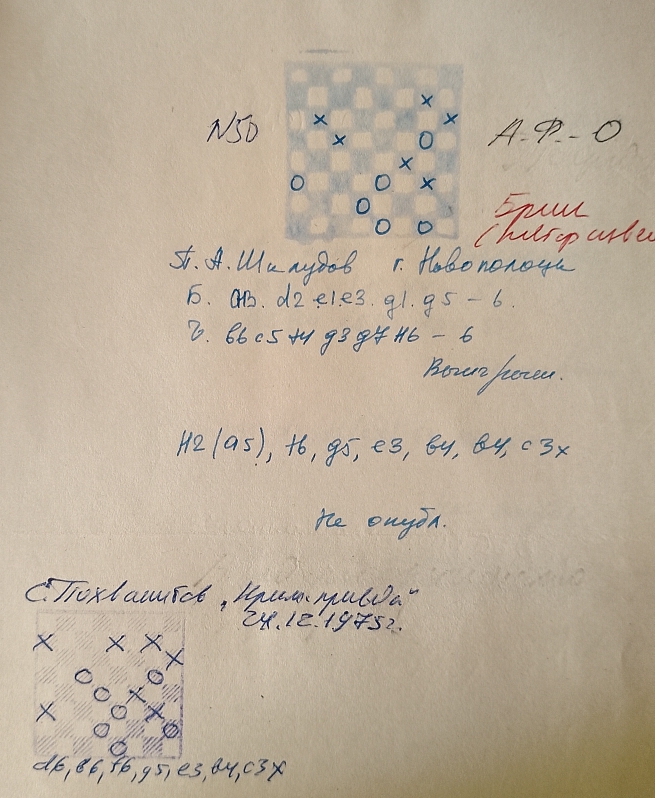 N50
А-Ф-О
П. А. Шклудов г. Новополоцк
Б. d2 e1 e3. g1. g5 - 6.
Ч. b6 c5 f4 g3 g7 H6 - 6
Выигрыш.
H2 (a5), f6, g5, e3, b4, b4, c3x
Не опубл.
С. Пихваштов „Крым. правда"
24.12.1975г.
d6, b6, f6, g5, e3, b4, c3x